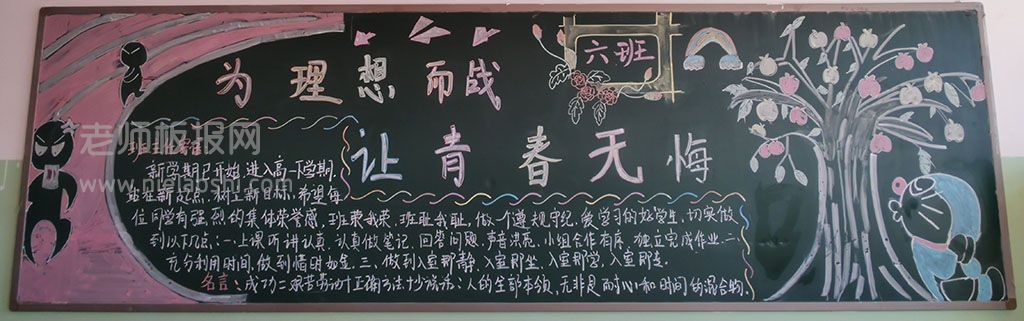 为理想而战
六班
让青春无悔
老师板报网
www.nielabshi.com
班主任寄语
新学期已开始,进入高一下学期,
站在新起点,树立新目标,希望每
位同学有强烈的集体荣誉感,班荣我荣,班耻我耻,做一个遵规守纪,爱学习的好学生,切实做
到以下几点:一.上课听讲认真,认真做笔记,回答问题,声音洪亮,小组合作有序,独立完成作业.二.
充分利用时间,做到惜时如金.三.做到入室即静,入室即坐,入室即学,入室即走.
名言:成功=艰苦劳动+正确方法+少说话:人的全部本领,无非是耐心和时间的混合物.